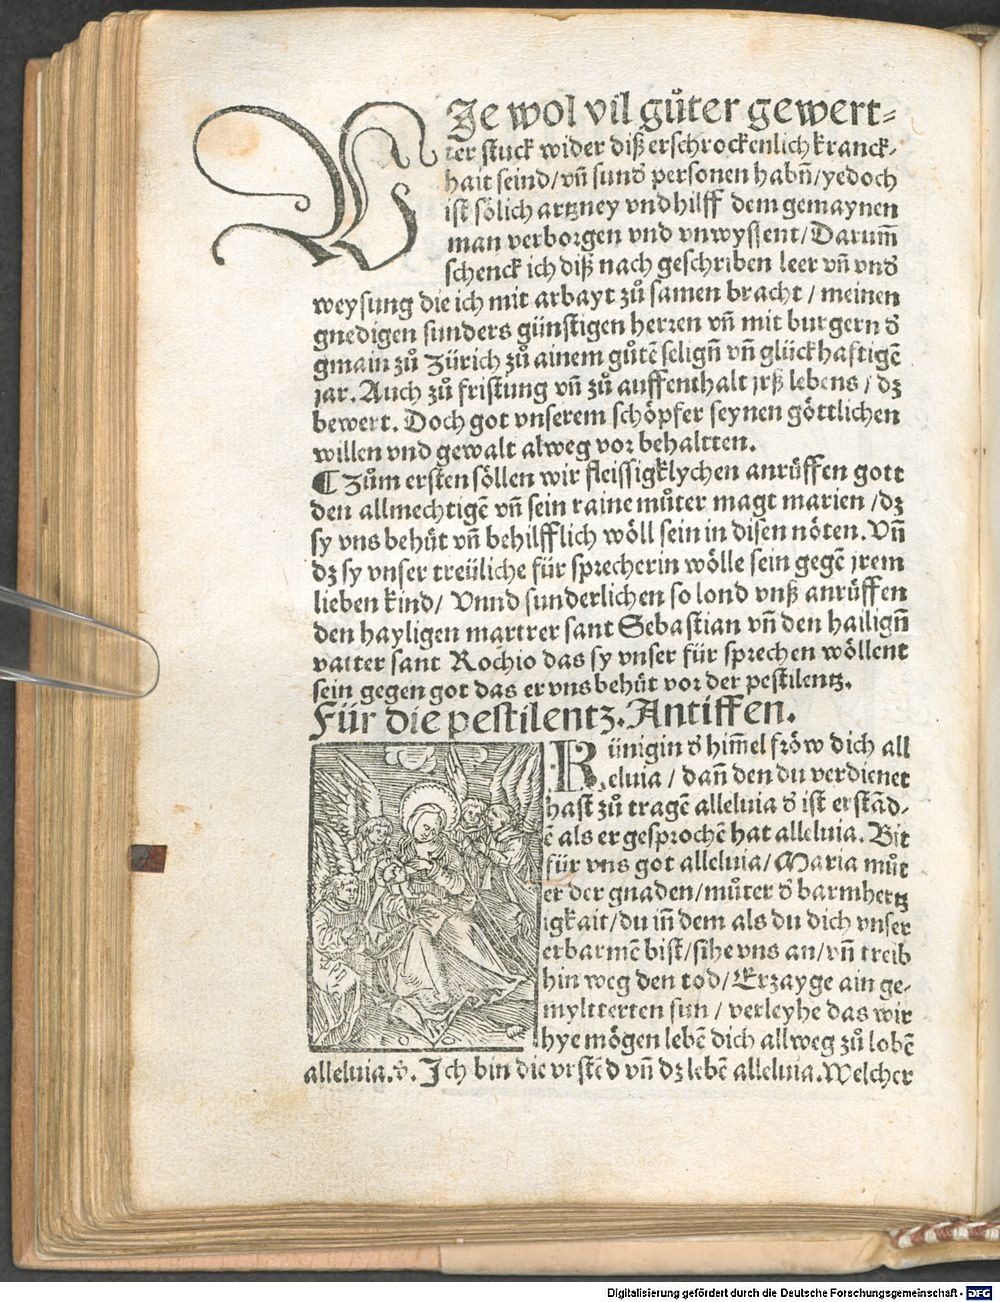 WJe wol vil gůter gewert⸗
ter stuck wider diß erschrockenlich kranck⸗
hait seind/vñ sund̕ personen habñ/yedoch
ist sölich artzney vnd hilff dem gemaynen
man verborgen vnd vnwyssent/Darum̃
schenck ich diß nach geschriben leer vñ vnd̕
weysung die ich mit arbayt zů samen bracht/meinen
gnedigen sunders günstigen herren vñ mit burgern d̕
gmain zů Zürich zů ainem gůtẽ seligñ vñ glückhaftigẽ
jar. Auch zů fristung vñ zů auffenthalt jrß lebens/dz
bewert. Doch got vnserem schöpfer seynen göttlichen
willen vnd gewalt alweg vor behaltten.
¶ Zům ersten söllen wir fleissigklychen anrüffen gott
den allmechtigẽ vñ sein raine můter magt marien/dz
sy vns behüt vñ behilfflich wöll sein in disen nöten. Vñ
dz sy vnser treüliche für sprecherin wölle sein gegẽ jrem
lieben kind/ Vnnd sunderlichen so lond vnß anrüffen
den hayligen martrer sant Sebastian vñ den hailigñ
vatter sant Rochio das sy vnser für sprechen wöllent
sein gegen got das er vns behüt vor der pestilentz.
Für die pestilentz. Antiffen.
Künigin d̕ him̃el fröw dich all
eluia/dañ den du verdienet
hast zů tragẽ alleluia d̕ ist erstãd⸗
ẽ als er gesprochẽ hat alleluia. Bit
für vns got alleluia/Maria můt
er der gnaden/můter d̕ barmhertz
igkait/du iñ dem als du dich vnser
erbarmẽ bist/sihe vns an/vñ treib
hin weg den tod/Erzayge ain ge⸗
myltterten sun/verleyhe das wir
hye mögen lebẽ dich allweg zů lobẽ
alleluia. v̕. Jch bin die vrstẽd vñ dz lebẽ alleluia. Welcher
Digitalisierung gefördert durch die Deutsche Forschungsgemeinschaft - DFG